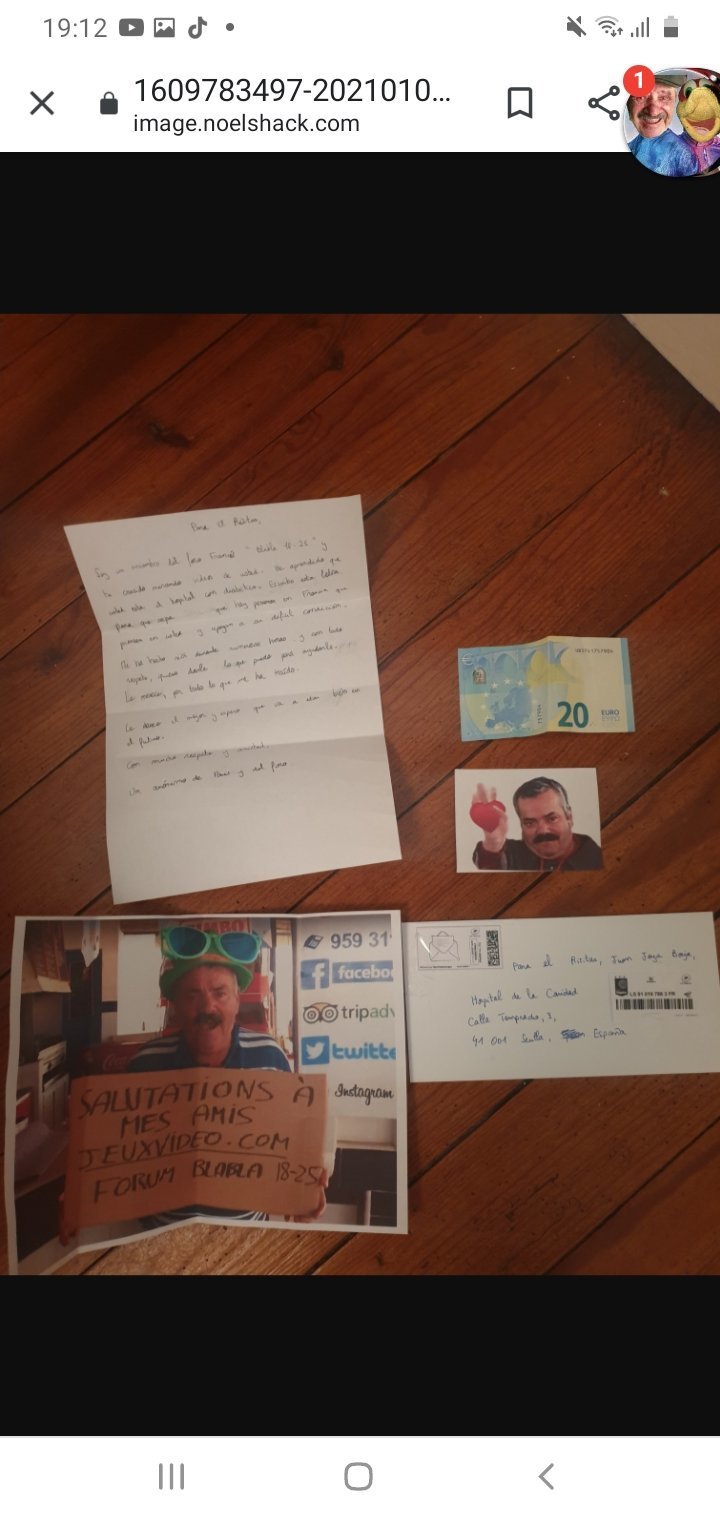 19:12
1609783497-2021010...
image.noelshack.com
1
Para el Risitas,
Soy un miembro del foro Francés "Blabla 18-25" y
he crecido mirando videos de usted. He aprendido que
usted esta al hospital con diabetica. Escribo esta letra
para que sepa que hay personas en Francia que
piensan en usted y apoyan a su dificil condición.
Me ha hecho reir durante numerosas horas y con todo
respeto, quiero darle lo que puedo para ayudarle.
Lo merece, por todo lo que me ha traido.
Le deseo el mejor y espero que va a estar bien en
el futuro.
Con mucho respeto y amistad.
Un anónimo de Paris y del foro.
20 EURO
ΕΥΡΩ
959 31
facebo
tripadv
twitte
Instagram
SALUTATIONS À
MES AMIS
JEUXVIDEO.COM
FORUM BLABLA 18-25
Para el Risitas, Juan Joya Borja,
Hospital de la Caridad
Calle Temprado, 3,
41 001 Sevilla, España